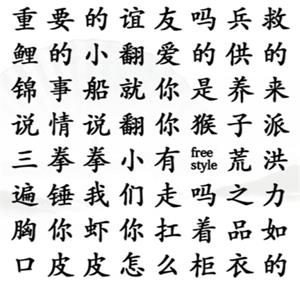 重要的谊友吗兵救
鲤的小翻爱的供的
锦事船就你是养来
说情说翻你猴子派
三拳拳小有free style荒洪
遍锤我们走吗之力
胸你虾你扛着品如
口皮皮怎么柜衣的